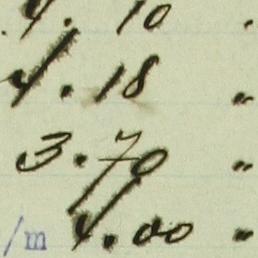 4.10 "
4.18 "
3.70 "
/m 4.00 "